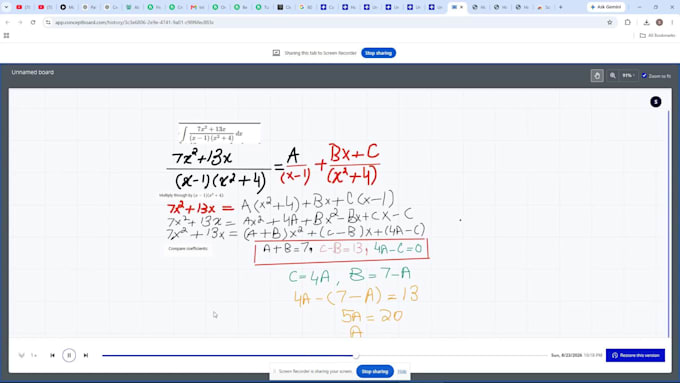 app.conceptboard.com/history/
Ask Gemini
All Bookmarks
Sharing this tab to Screen Recorder
Stop sharing
Unnamed board
91%
Zoom to fit
S
∫ 7x² + 13x / (x − 1)(x² + 4) dx
7x²+13x / (x-1)(x²+4) = A / (x-1) + Bx+C / (x²+4)
Multiply through by (x − 1)(x² + 4)
7x²+13x = A(x²+4)+Bx+C(x-1)
7x²+13x = Ax²+4A+Bx²-Bx+Cx-C
7x²+13x = (A+B)x²+(C-B)x+(4A-C)
Compare coefficients
A+B=7, C-B=13, 4A-C=0
C=4A, B=7-A
4A-(7-A)=13
5A=20
A
1x
Sun, 8/23/2026 10:18 PM
Restore this version
Screen Recorder is sharing your screen.
Stop sharing
Hide